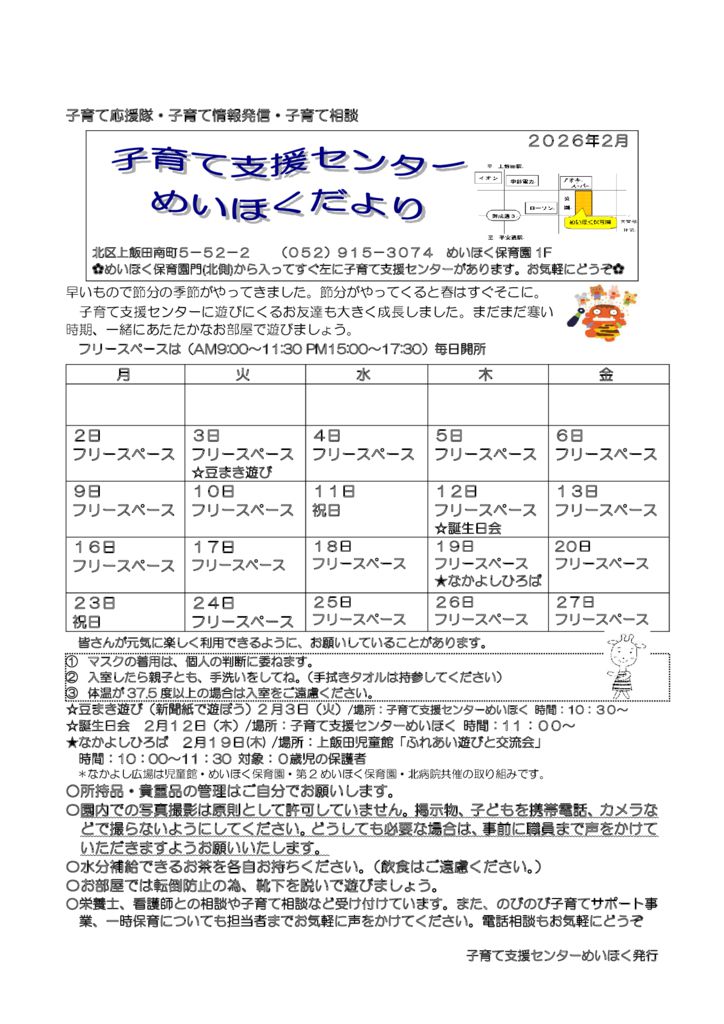 子育て応援隊・子育て情報発信・子育て相談
2026年2月
子育て支援センター
めいほくだより
至 上飯田駅
イオン
中部電力
アオキ
スーパー
公園
ローソン
めいほく保育園
至 平安通駅
北区上飯田南町5-52-2 (052)915-3074 めいほく保育園1F
✿めいほく保育園門(北側)から入ってすぐ左に子育て支援センターがあります。お気軽にどうぞ✿
早いもので節分の季節がやってきました。節分がやってくると春はすぐそこに。
子育て支援センターに遊びにくるお友達も大きく成長しました。まだまだ寒い
時期、一緒にあたたかなお部屋で遊びましょう。
フリースペースは(AM9:00〜11:30 PM15:00〜17:30)毎日開所
月 火 水 木 金
2日 3日 4日 5日 6日
フリースペース フリースペース フリースペース フリースペース フリースペース
☆豆まき遊び
9日 10日 11日 12日 13日
フリースペース フリースペース 祝日 フリースペース フリースペース
☆誕生日会
16日 17日 18日 19日 20日
フリースペース フリースペース フリースペース フリースペース フリースペース
★なかよしひろば
23日 24日 25日 26日 27日
祝日 フリースペース フリースペース フリースペース フリースペース
皆さんが元気に楽しく利用できるように、お願いしていることがあります。
① マスクの着用は、個人の判断に委ねます。
② 入室したら親子とも、手洗いをしてね。(手拭きタオルは持参してください)
③ 体温が37.5度以上の場合は入室をご遠慮ください。
☆豆まき遊び(新聞紙で遊ぼう)2月3日(火)/場所:子育て支援センターめいほく 時間:10:30〜
☆誕生日会 2月12日(木)/場所:子育て支援センターめいほく 時間:11:00〜
★なかよしひろば 2月19日(木) /場所:上飯田児童館「ふれあい遊びと交流会」
時間:10:00〜11:30 対象:0歳児の保護者
*なかよし広場は児童館・めいほく保育園・第2めいほく保育園・北病院共催の取り組みです。
〇所持品・貴重品の管理はご自分でお願いします。
〇園内での写真撮影は原則として許可していません。掲示物、子どもを携帯電話、カメラな
どで撮らないようにしてください。どうしても必要な場合は、事前に職員まで声をかけて
いただきますようお願いいたします。
〇水分補給できるお茶を各自お持ちください。(飲食はご遠慮ください。)
〇お部屋では転倒防止の為、靴下を脱いで遊びましょう。
〇栄養士、看護師との相談や子育て相談など受け付けています。また、のびのび子育てサポート事
業、一時保育についても担当者までお気軽に声をかけてください。電話相談もお気軽にどうぞ
子育て支援センターめいほく発行